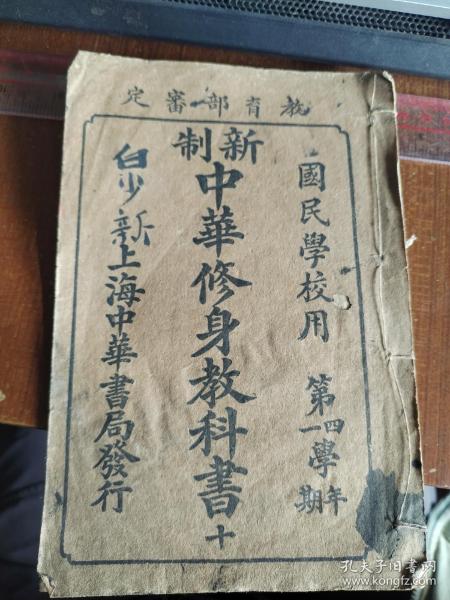 教育部審定
國民學校用 第四學年第一學期
新制
中華修身教科書 十
白少新
上海中華書局發行
孔夫子旧书网
www.kongfz.com